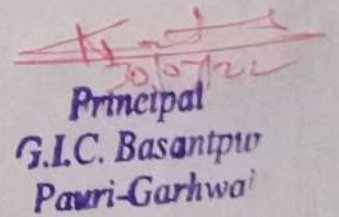 30/07/22
Principal
G.I.C. Basantpur
Pauri-Garhwal